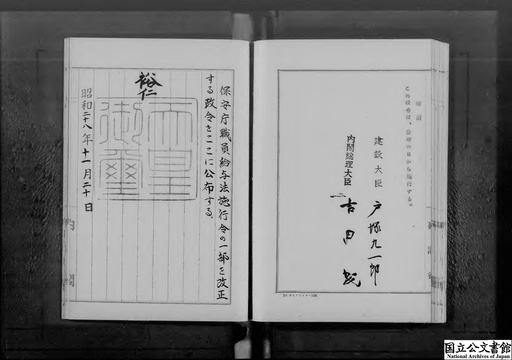 附則
この政令は、公布の日から施行する。
建設大臣 戸塚九一郎
内閣総理大臣 吉田茂
保安庁職員給与法施行令の一部を改正
する政令をここに公布する。
裕仁
天皇
御璽
昭和二十八年十一月二十日
国立公文書館
National Archives of Japan